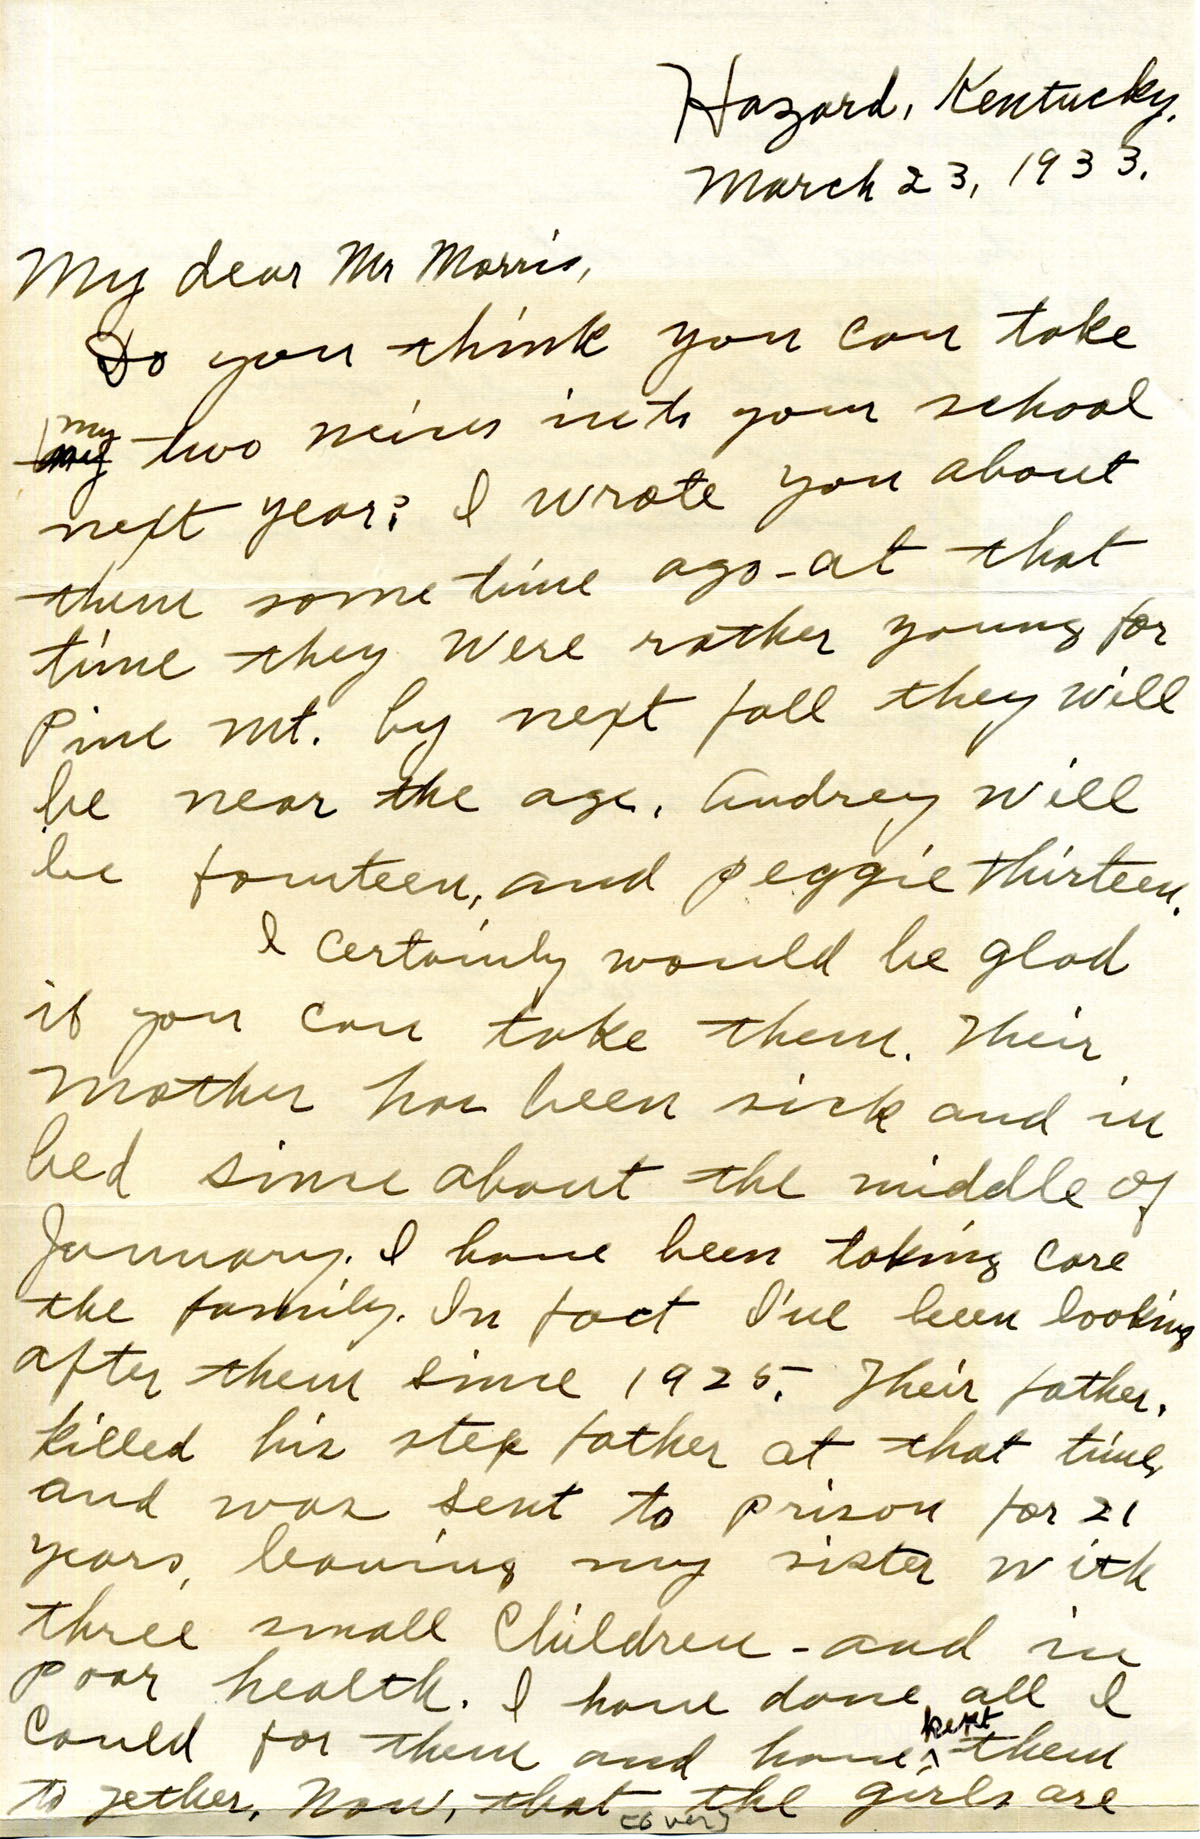 Hazard, Kentucky.
March 23, 1933.
My dear Mr Morris,
Do you think you can take
my
my two neices into your school
next year? I wrote you about
them some time ago - at that
time they were rather young for
Pine Mt. by next fall they will
be near the age. Audrey will
be fourteen, and Peggie thirteen.
I certainly would be glad
if you can take them. Their
Mother has been sick and in
bed since about the middle of
January. I have been taking care
the family. In fact I've been looking
after them since 1925. Their father.
killed his step father at that time,
and was sent to prison for 21
years, leaving my sister with
three small Children - and in
poor health. I have done all I
kept
Could for them and have ^ them
together. Now, that the girls are
(over)